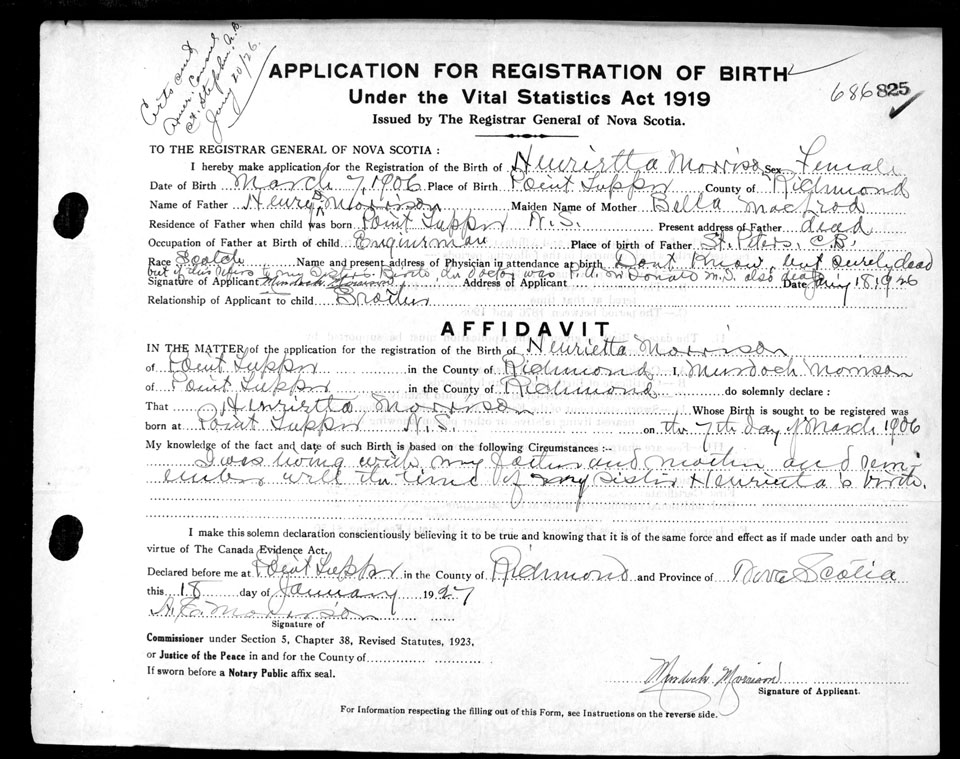 Certs sent
Amer. Consul
St. Stephen, N.B.
Jany 20/26.
APPLICATION FOR REGISTRATION OF BIRTH
Under the Vital Statistics Act 1919
686825
Issued by The Registrar General of Nova Scotia.
TO THE REGISTRAR GENERAL OF NOVA SCOTIA :
I hereby make application for the Registration of the Birth of Henrietta Morrison Sex Female
Date of Birth March 7, 1906 Place of Birth Point Tupper County of Richmond
Name of Father Henry Morrison Maiden Name of Mother Bella MacLeod
Residence of Father when child was born Point Tupper N.S. Present address of Father dead
Occupation of Father at Birth of child Engineman Place of birth of Father St. Peters, C.B.
Race Scotch Name and present address of Physician in attendance at Birth Dont Know, but surely dead
but if this refers to my Sisters Birth, the doctor was P.A. Mc Donald M.D. also dead
Signature of Applicant Murdoch Morrison Address of Applicant Date Jany 18 1926
Relationship of Applicant to child Brother
AFFIDAVIT
IN THE MATTER of the application for the registration of the Birth of Henrietta Morrison
of Point Tupper in the County of Richmond I Murdoch Morrison
of Point Tupper in the County of Richmond do solemnly declare :
That Henrietta Morrison Whose Birth is sought to be registered was
born at Point Tupper N.S. on the 7th day of March 1906
My knowledge of the fact and date of such Birth is based on the following Circumstances :—
I was living with my father and mother and rem-
ember well the time of my sister Henrietta's birth.
I make this solemn declaration conscientiously believing it to be true and knowing that it is of the same force and effect as if made under oath and by
virtue of The Canada Evidence Act.
Declared before me at Point Tupper in the County of Richmond and Province of Nova Scotia
this 18 day of January 1927
A. E. Morrison
Signature of
Commissioner under Section 5, Chapter 38, Revised Statutes, 1923,
or Justice of the Peace in and for the County of
If sworn before a Notary Public affix seal.
Murdoch Morrison
Signature of Applicant.
For Information respecting the filling out of this Form, see Instructions on the reverse side.